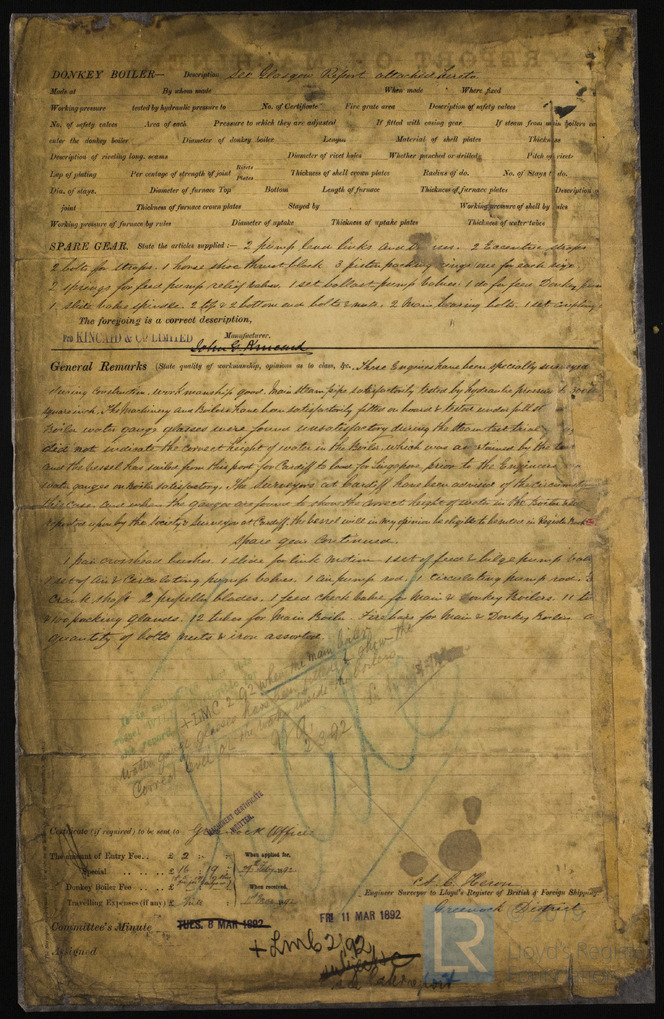 DONKEY BOILER— Description See Glasgow Report attached hereto
Made at By whom made When made Where fixed
Working pressure tested by hydraulic pressure to No. of Certificate Fire grate area Description of safety valves
No. of safety valves Area of each Pressure to which they are adjusted If fitted with easing gear If steam from main boilers can
enter the donkey boiler Diameter of donkey boiler Length Material of shell plates Thickness
Description of riveting long. seams Diameter of rivet holes Whether punched or drilled Pitch of rivets
Lap of plating Per centage of strength of joint Rivets Plates Thickness of shell crown plates Radius of do. No. of Stays to do.
Dia. of stays. Diameter of furnace Top Bottom Length of furnace Thickness of furnace plates Description o
joint Thickness of furnace crown plates Stayed by Working pressure of shell by rules
Working pressure of furnace by rules Diameter of uptake Thickness of uptake plates Thickness of water tubes
SPARE GEAR. State the articles supplied:— 2 pump lead links and 2 Eccentric straps
2 bolts for straps. 1 horse shoe thrust block 3 piston packing rings one for each size.
2 springs for feed pump relief valves. 1 set ballast pump valves. 1 do for feed Donkey
1 slide valve spindle 2 top & 2 bottom end bolts & nuts. 2 Main bearing bolts. 1 set coupling
The foregoing is a correct description,
Pro KINCAID & CO LIMITED Manufacturer.
John G. Kincaid
General Remarks (State quality of workmanship, opinions as to class, &c. These Engines have been specially surveyed
during construction. workmanship good. Main Steam pipe satisfactorily tested by hydraulic pressure to 300 lb
square inch. The Machinery and Boilers have been satisfactorily fitted on board & tested under full st
Boiler water gauge glasses were found unsatisfactory during the steam test trial
did not indicate the correct height of water in the Boiler, which was ascertained by the
and the vessel has sailed from this port for Cardiff to load for Singapore prior to the Engineers
water gauges on Boiler satisfactory. The Surveyors at Cardiff have been advised of the circumstan
this case. And when the gauges are found to show the correct height of water in the Boiler and
reported upon by the Society's Surveyor at Cardiff, the vessel will in my opinion be eligible to be noted in Register Book
Spare gear continued.
1 pair overhead bushes. 1 slide for link motion 1 set of feed & bilge pump
1 set of Air & Circulating pump valves. 1 air pump rod. 1 circulating pump rod. 3
Crank shaft 2 propeller blades. 1 feed check valve for Main & Donkey Boilers. 11
& 100 packing glands. 12 tubes for Main Boiler. Fire bars for Main & Donkey Boilers a
quantity of bolts nuts & iron assorted.
+ LMC 2.92 when the main boiler
water gauge glasses have been altered & show the
Correct level of the water inside the boilers.
9.3.92
Certificate (if required) to be sent to Greenock Office
The amount of Entry Fee.. £ 2 : - : When applied for,
Special £ 16 : 19 :
Donkey Boiler Fee £ When received,
Travelling Expenses (if any) £ Nil
A. C. Heron
Engineer Surveyor to Lloyd's Register of British & Foreign Shipping.
Greenock District
Committee's Minute TUES. 8 MAR 1892 FRI 11 MAR 1892
Assigned + LMC 2.92
subject to
LR Lloyd's Register